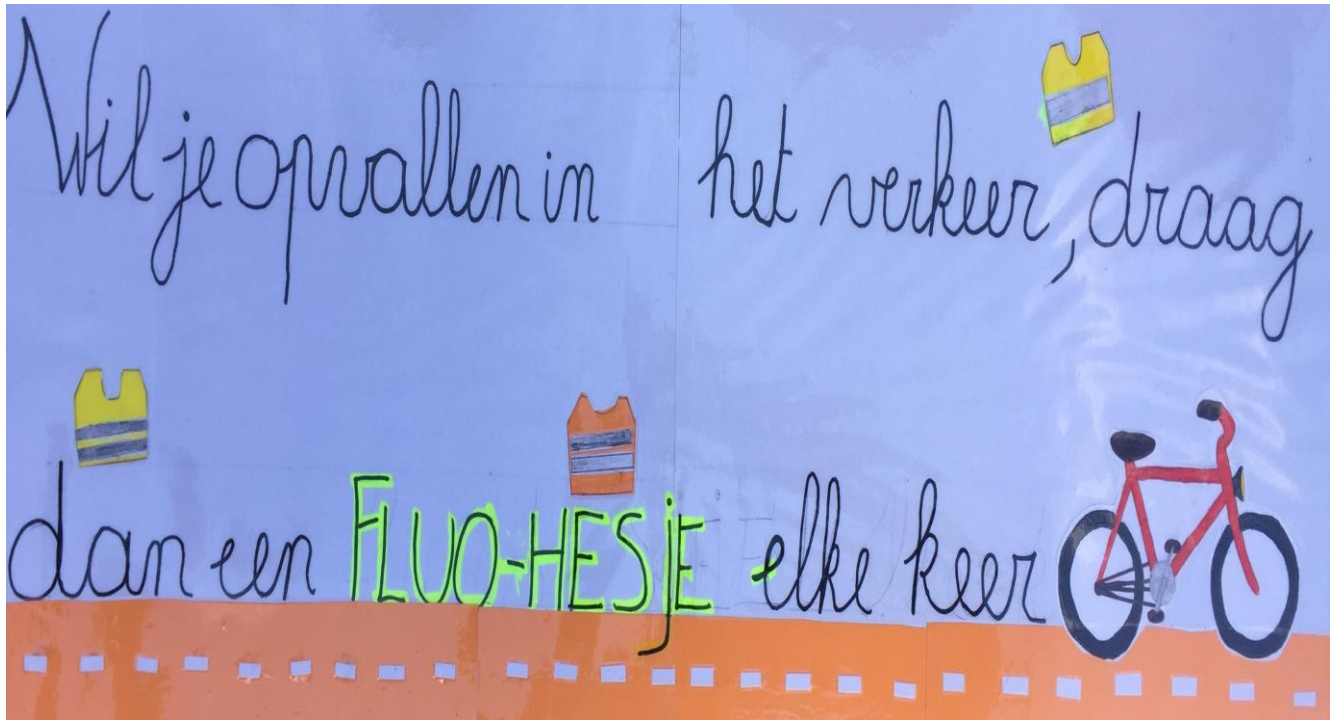 Wil je opvallen in het verkeer, draag
dan een FLUO-HESjE elke keer